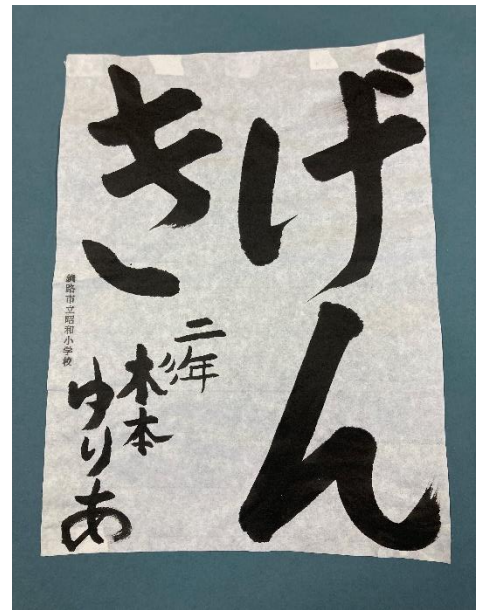 げん
き
二年
杉本
ゆりあ
釧路市立昭和小学校